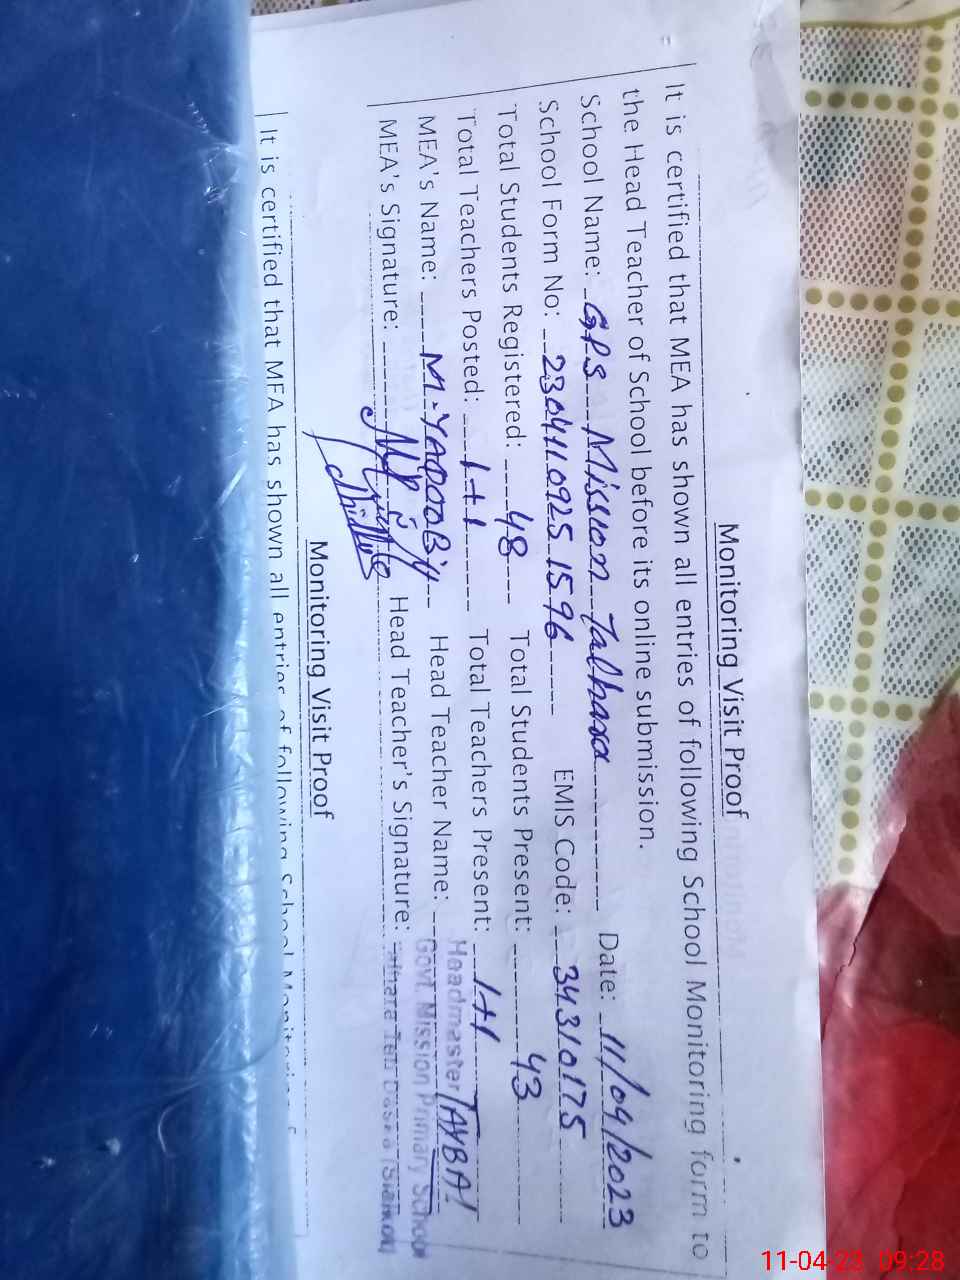 Monitoring Visit Proof
It is certified that MEA has shown all entries of following School Monitoring form to
the Head Teacher of School before its online submission.
School Name: GPS Mission Talhara Date: 11/04/2023
School Form No: 230411 0925 1596 EMIS Code: 34310175
Total Students Registered: 48 Total Students Present: 43
Total Teachers Posted: 1+1 Total Teachers Present: 1+1
MEA's Name: M. YAQOOB Head Teacher Name: TAYBA
MEA's Signature: Head Teacher's Signature:
Headmaster
Govt. Mission Primary School
Monitoring Visit Proof
It is certified that MEA has shown all entries of following School
11-04-23 09:28